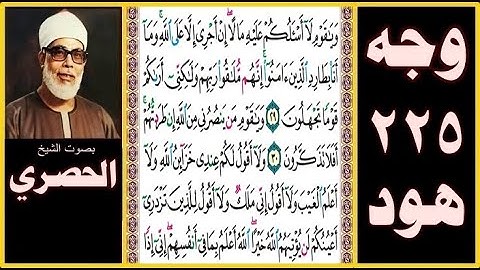 وجه
٢٢٥
هود
بصوت الشيخ
الحصري
وَيَٰقَوْمِ لَآ أَسْـَٔلُكُمْ عَلَيْهِ مَالًا ۖ إِنْ أَجْرِىَ إِلَّا عَلَى ٱللَّهِ ۚ وَمَآ
أَنَا۠ بِطَارِدِ ٱلَّذِينَ ءَامَنُوٓا۟ ۚ إِنَّهُم مُّلَٰقُوا۟ رَبِّهِمْ وَلَٰكِنِّىٓ أَرَىٰكُمْ
قَوْمًا تَجْهَلُونَ ٢٩ وَيَٰقَوْمِ مَن يَنصُرُنِى مِنَ ٱللَّهِ إِن طَرَدتُّهُمْ ۚ
أَفَلَا تَذَكَّرُونَ ٣٠ وَلَآ أَقُولُ لَكُمْ عِندِى خَزَآئِنُ ٱللَّهِ وَلَآ
أَعْلَمُ ٱلْغَيْبَ وَلَآ أَقُولُ إِنِّى مَلَكٌ وَلَآ أَقُولُ لِلَّذِينَ تَزْدَرِىٓ
أَعْيُنُكُمْ لَن يُؤْتِيَهُمُ ٱللَّهُ خَيْرًا ۖ ٱللَّهُ أَعْلَمُ بِمَا فِىٓ أَنفُسِهِمْ ۖ إِنِّىٓ إِذًا